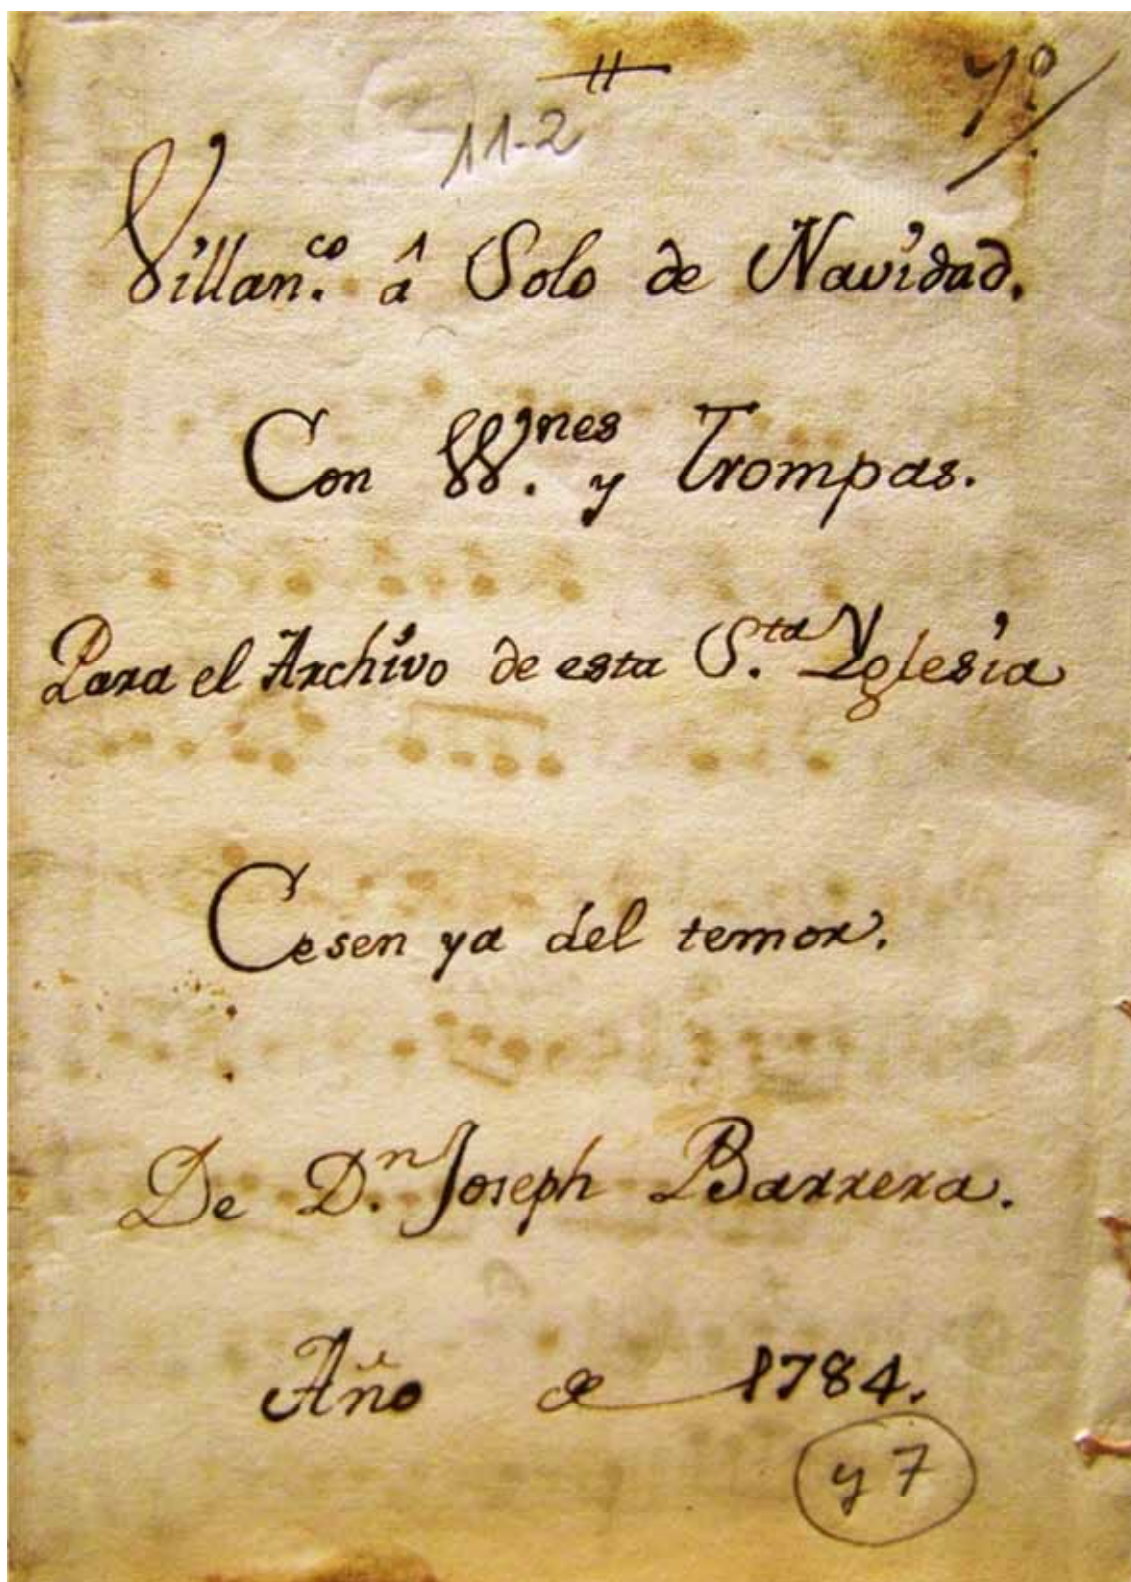 7º
11-2
Villan.co â Solo de Navidad.
Con VV.nes y Trompas.
Para el Archivo de esta S.ta Yglesia
Cesen ya del temor.
De D.n Joseph Barrera.
Año de 1784.
y 7